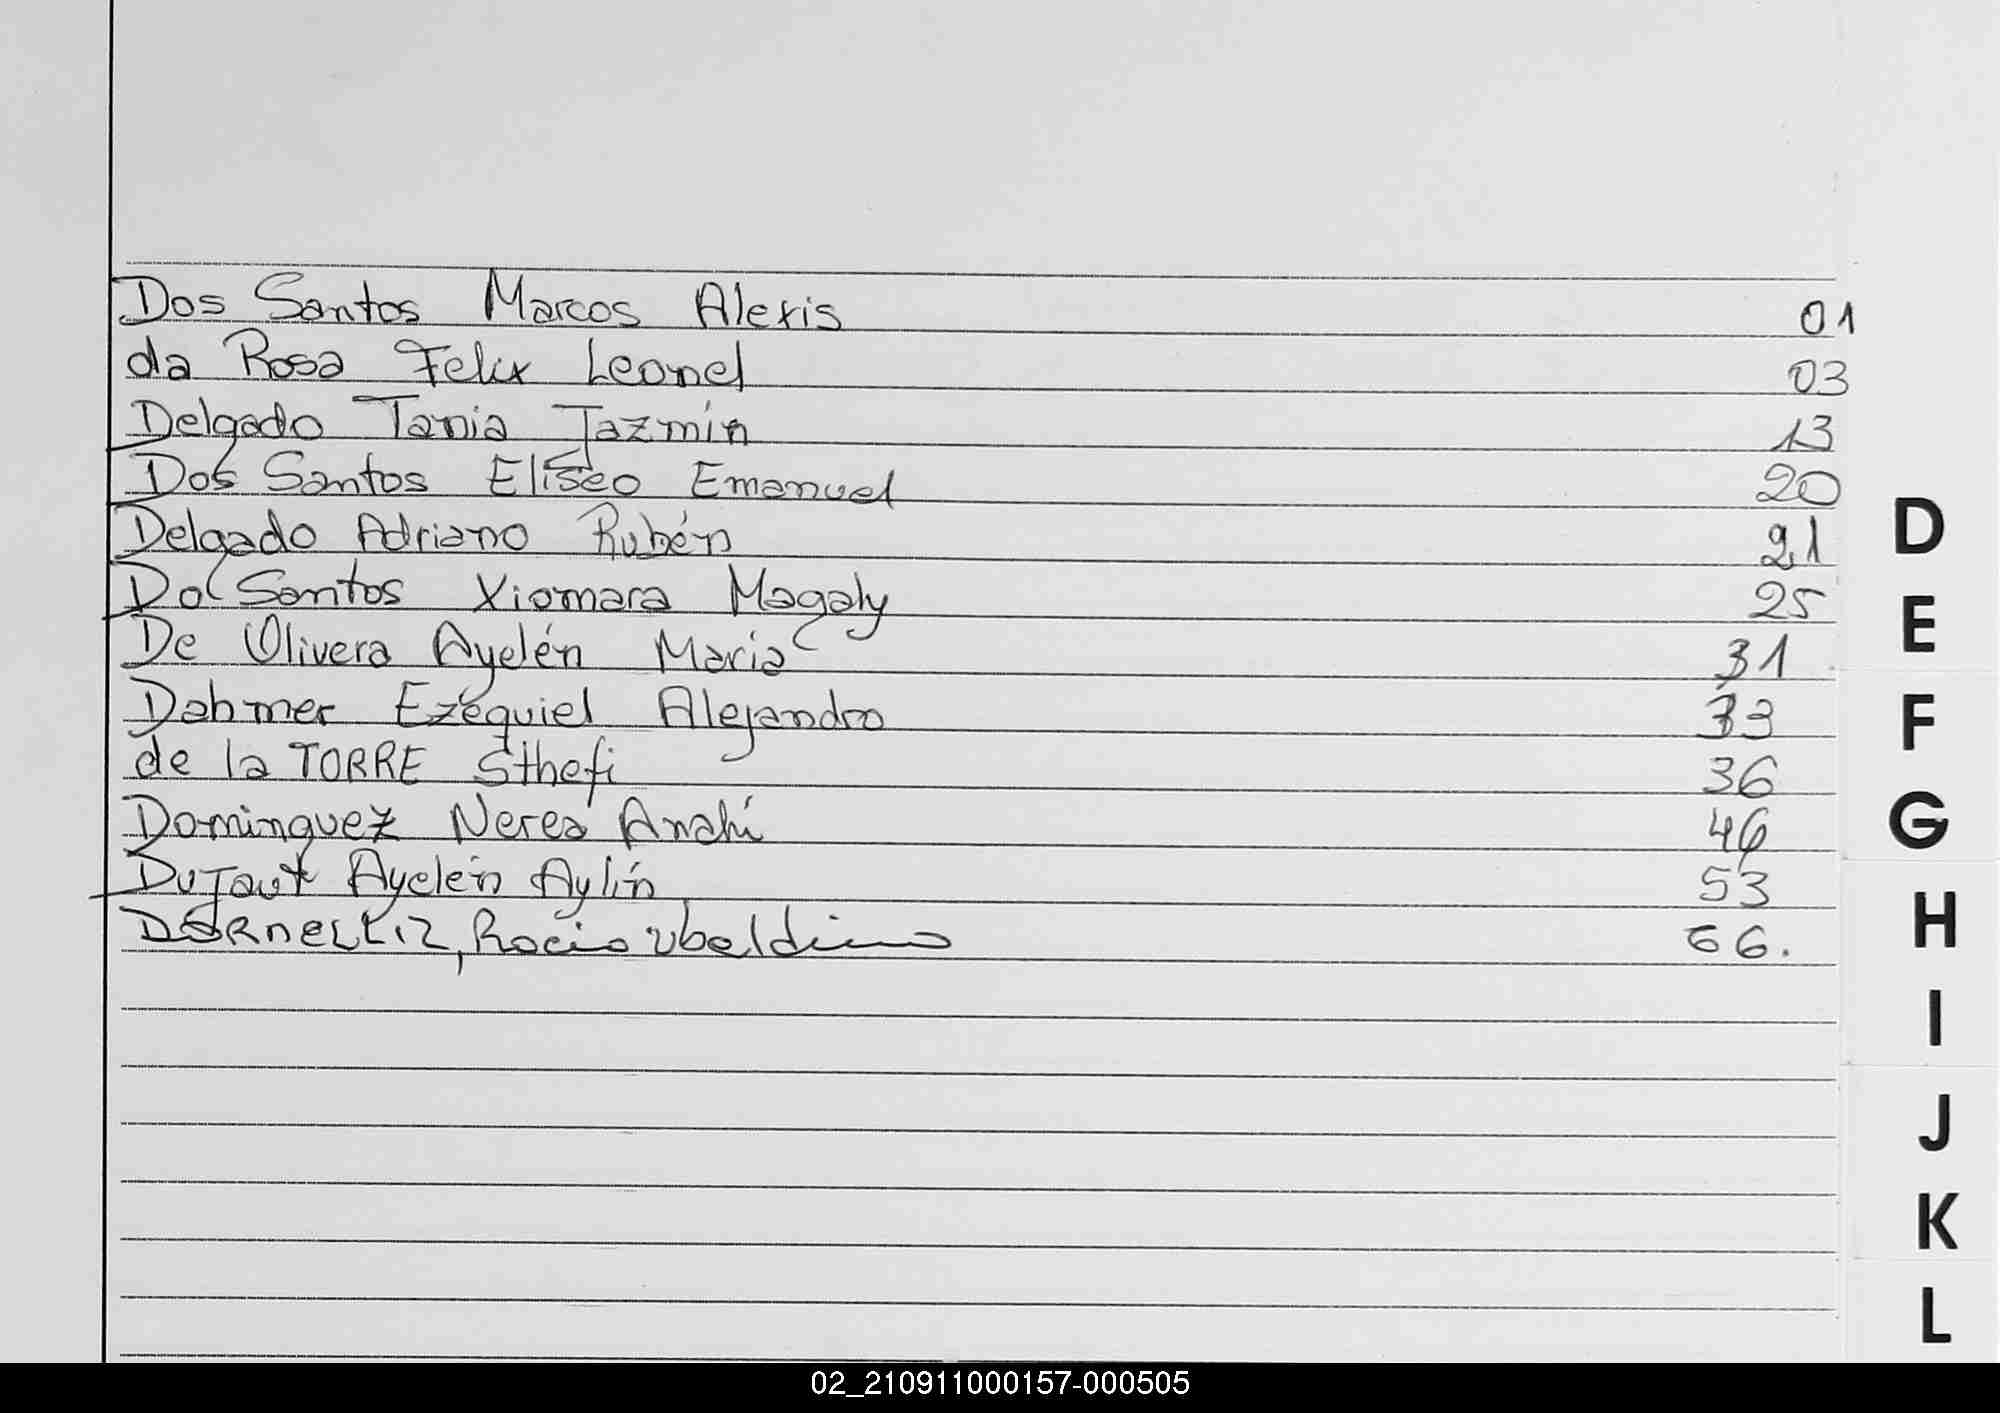 Dos Santos Marcos Alexis 01
da Rosa Felix Leonel 03
Delgado Tania Jazmín 13
Dos Santos Eliseo Emanuel 20
Delgado Adriano Rubén 21
Do Santos Xiomara Magaly 25
De Olivera Ayelén Maria 31
Dahmer Ezequiel Alejandro 33
de la TORRE Sthefi 36
Dominguez Nerea Anahí 46
Dujaut Ayelén Aylín 53
Rocio Ubaldino 66.
D
E
F
G
H
I
J
K
L
02_210911000157-000505